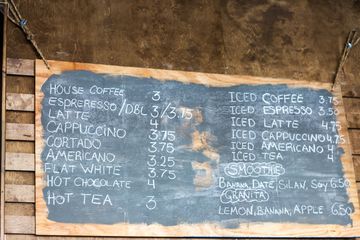 HOUSE COFFEE 3
ESPRERESSO/DBL 3/3.75
LATTE 4
CAPPUCCINO 3.75
CORTADO 3.75
AMERICANO 3.25
FLAT WHITE 3.75
HOT CHOCOLATE 4
HOT TEA 3
ICED COFFEE 3.75
ICED ESPRESSO 3.50
ICED LATTE 4.75
ICED CAPPUCCINO 4.75
ICED AMERICANO 4
ICED TEA 4
SMOOTHIE
BANANA, DATE, SILAN, SOY 6.50
GRANITA
LEMON, BANANA, APPLE 6.50